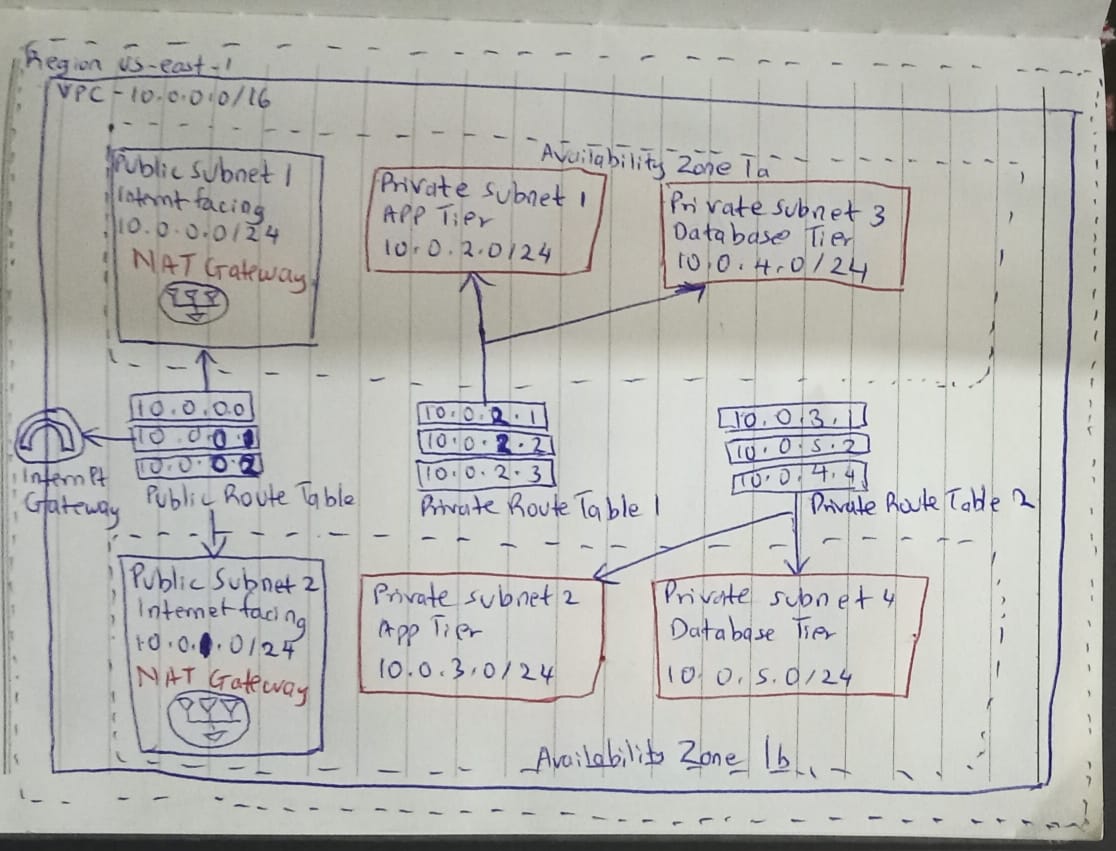 Region us-east-1
VPC - 10.0.0.0/16
Availability Zone 1a
Public Subnet 1
Internt facing
10.0.0.0/24
NAT Gateway
Private Subnet 1
APP Tier
10.0.2.0/24
Private Subnet 3
Database Tier
10.0.4.0/24
10.0.0.0
10.0.0.1
10.0.0.2
Public Route Table
Internet
Gateway
10.0.2.1
10.0.2.2
10.0.2.3
Private Route Table 1
10.0.3.1
10.0.5.2
10.0.4.4
Private Route Table 2
Public Subnet 2
Internet facing
10.0.1.0/24
NAT Gateway
Private Subnet 2
App Tier
10.0.3.0/24
Private Subnet 4
Database Tier
10.0.5.0/24
Availability Zone 1b